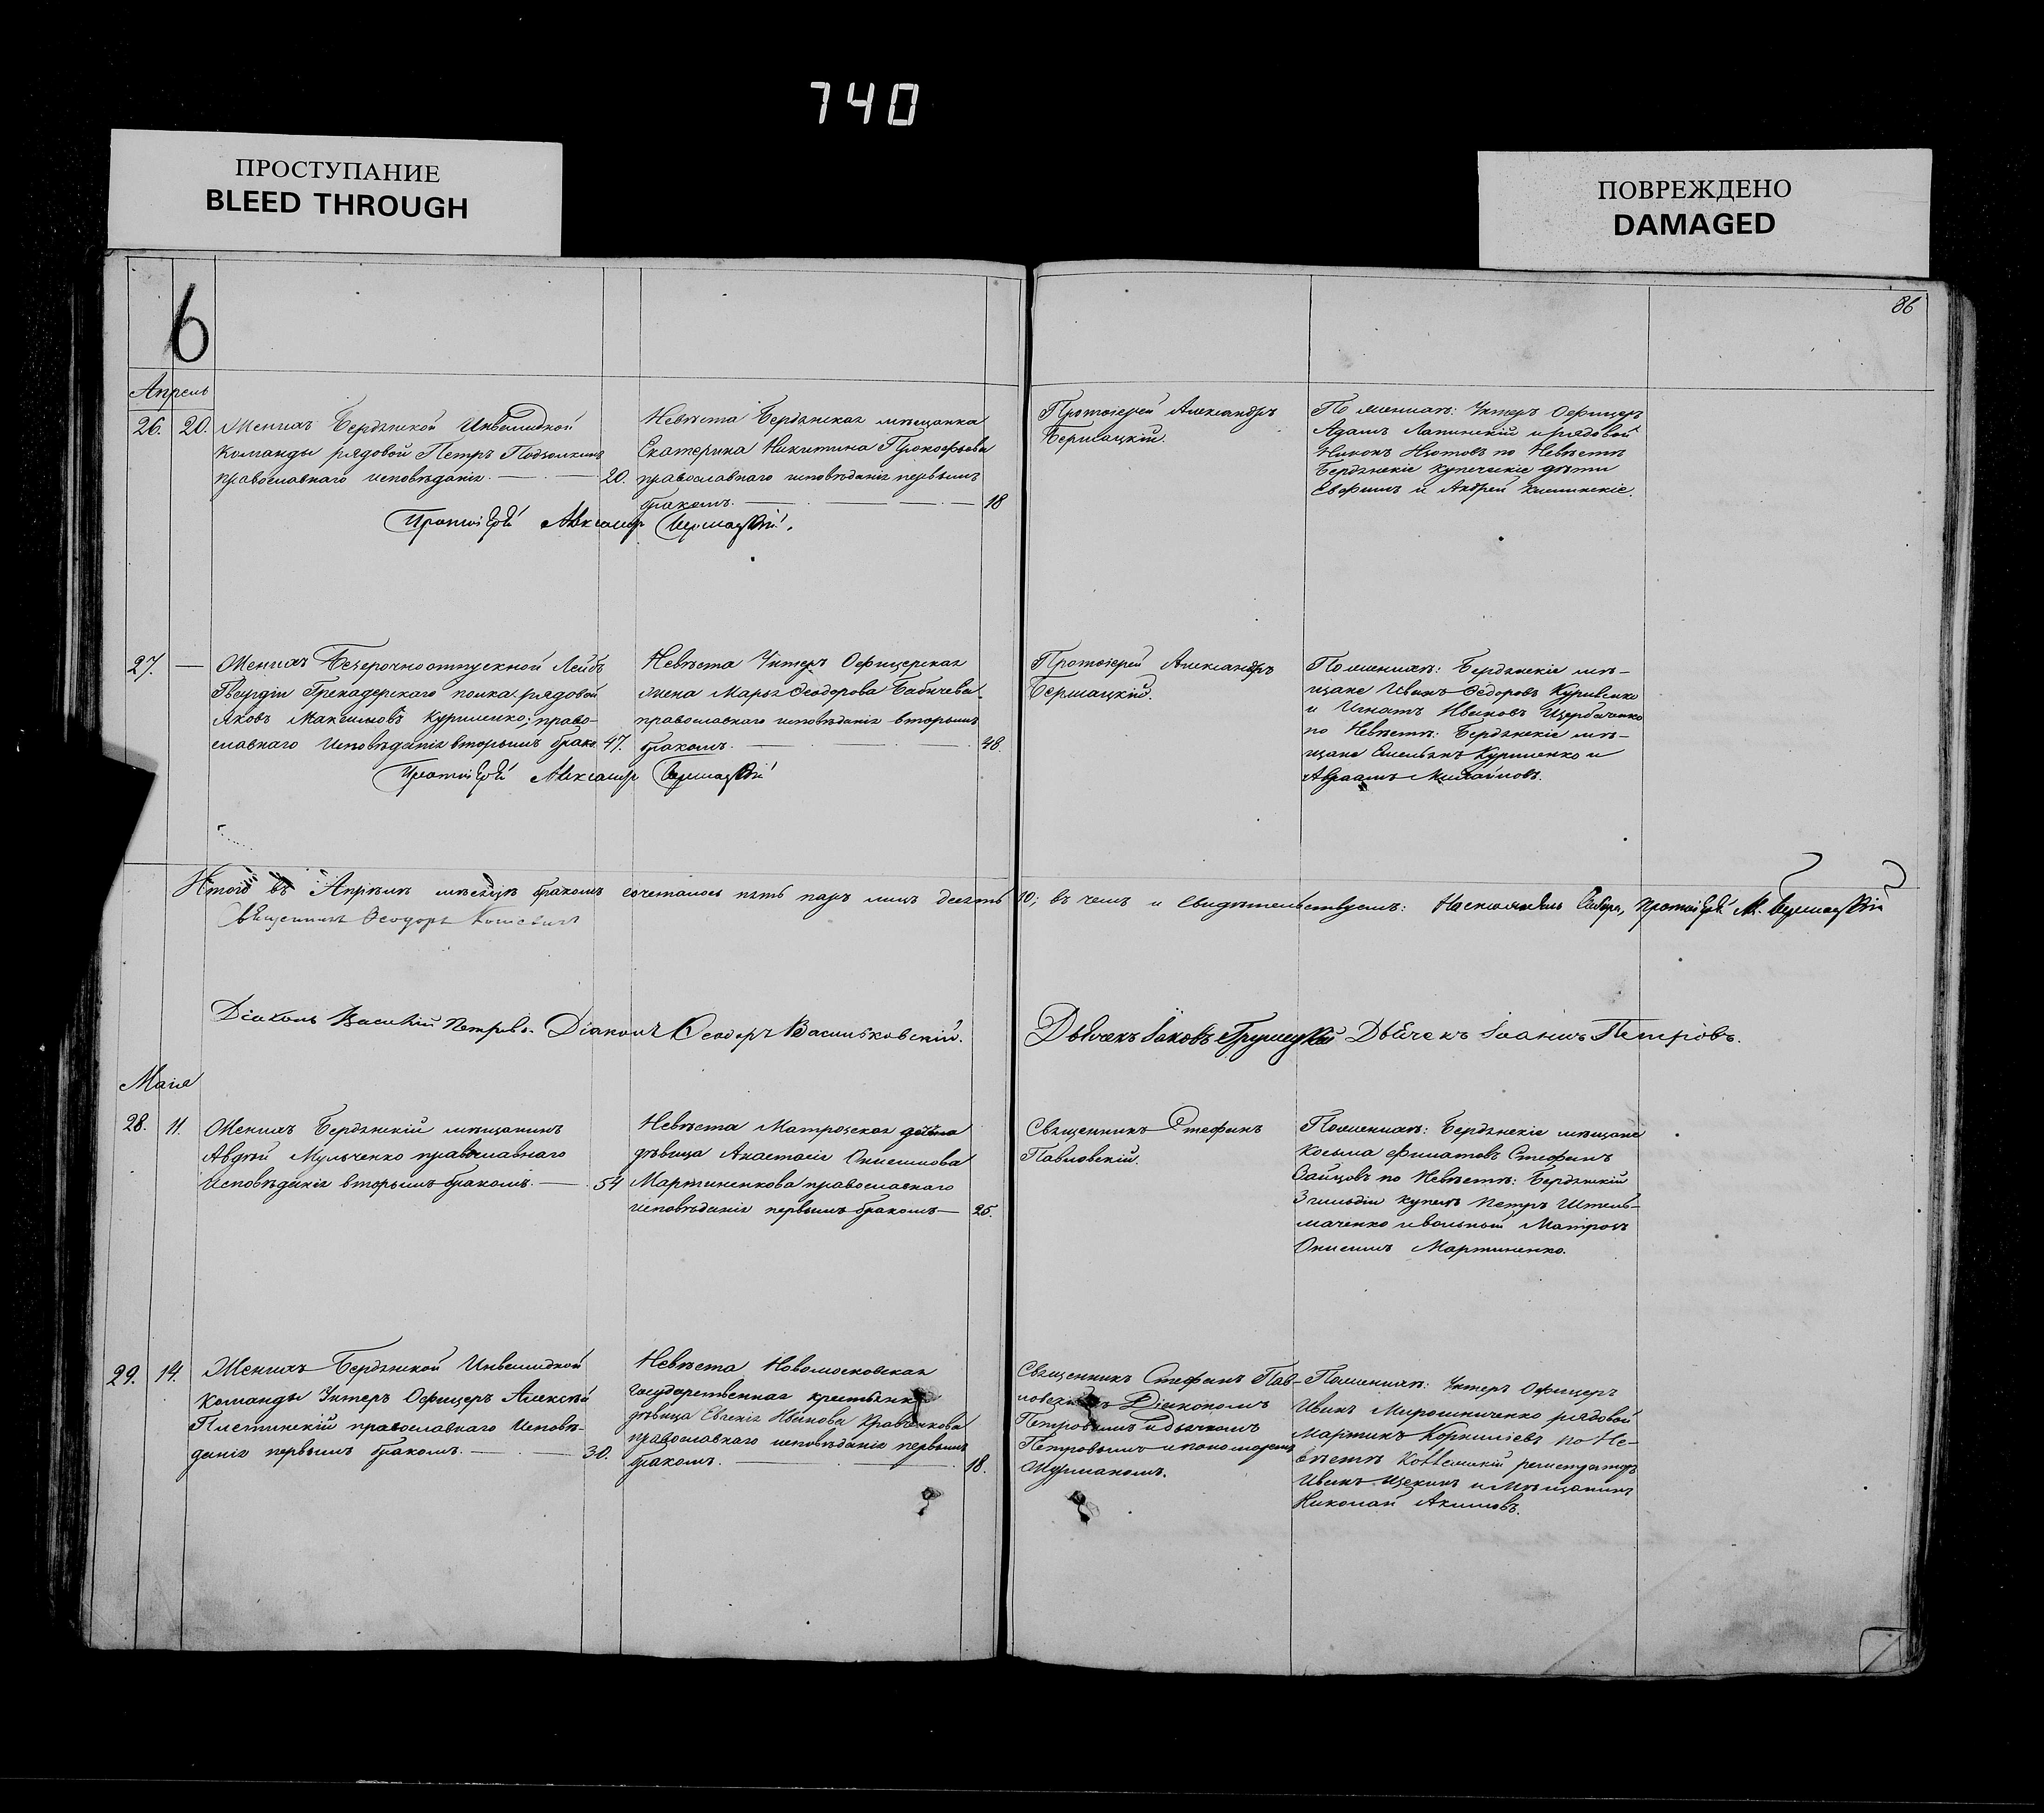 740
ПРОСТУПАНИЕ
BLEED THROUGH
ПОВРЕЖДЕНО
DAMAGED
6
86
Апрель
26. 20. Женихъ Бердянской Инвалидной
команды рядовой Петръ
православнаго исповѣданія. 20.
Невѣста Бердянская мѣщанка
Екатерина Никитина Прокофьева
православнаго исповѣданія первымъ
бракомъ. 18
Протоіерей Александръ
Бершацкій.
По женихѣ: Унтеръ Офицеръ
Адамъ Лапинскій и рядовой
Никонъ по Невѣстѣ
Бердянскіе купеческіе дѣти
и Андрей
Протоіерей Александръ Бершацкій.
27. — Женихъ Безсрочноотпускной Лейбъ
Гвардіи Гренадерскаго полка рядовой
Яковъ Максимовъ Куриленко; право-
славнаго Исповѣданія вторымъ брако. 47.
Невѣста Унтеръ Офицерская
жена Марья Ѳеодорова Бабичева
православнаго исповѣданія вторымъ
бракомъ. 48.
Протоіерей Александръ
Бершацкій.
По женихѣ: Бердянскіе мѣ-
щане Иванъ Ѳедоровъ Куриленко
и Игнатъ Ивановъ Щербаченко
по Невѣстѣ: Бердянскіе мѣ-
щане Емельянъ Куриленко и
Авраамъ Михайловъ.
Протоіерей Александръ Бершацкій
Итого въ Апрѣлѣ мѣсяцѣ бракомъ сочеталось пять паръ лицъ десять 10; въ чемъ и свидѣтельствуемъ: Настоятель Собора, Протоіерей А. Бершацкій
Священникъ Ѳеодоръ
Діаконъ Василій Петровъ. Діаконъ Ѳеодоръ Васильковскій. Дьячекъ Іаковъ Грушецкій Дьячекъ Іоаннъ Петровъ.
Маія
28. 11. Женихъ Бердянскій мѣщанинъ
Авдѣй Мульченко православнаго
Исповѣданія вторымъ бракомъ. 54
Невѣста Матроская дочь
дѣвица Анастасія Онисимова
Мартиненкова православнаго
исповѣданія первымъ бракомъ 25.
Священникъ Стефанъ
Павловскій.
По женихѣ: Бердянскіе мѣщане
Косьма Филатовъ Стефанъ
Зайцовъ по Невѣстѣ: Бердянскій
3 гильдіи купецъ Петръ Штель-
маченко и вольный Матросъ
Онисимъ Мартиненко.
29. 14. Женихъ Бердянской Инвалидной
команды Унтеръ Офицеръ Алексѣй
Плетинскій православнаго Исповѣ-
данія первымъ бракомъ. 30.
Невѣста Новомосковская
государственная крестьянка
дѣвица Евгенія Иванова Кравченкова
православнаго исповѣданія первымъ
бракомъ. 18.
Священникъ Стефанъ Пав-
ловскій съ Діакономъ
Петровымъ и дьячкомъ
Петровымъ и пономаремъ
Шурманомъ.
По женихѣ: Унтеръ Офицеръ
Иванъ Мирошниченко рядовой
Мартинъ Корнилiевъ по Не-
вѣстѣ регистраторъ
Иванъ Щекинъ и мѣщанинъ
Николай Акимовъ.